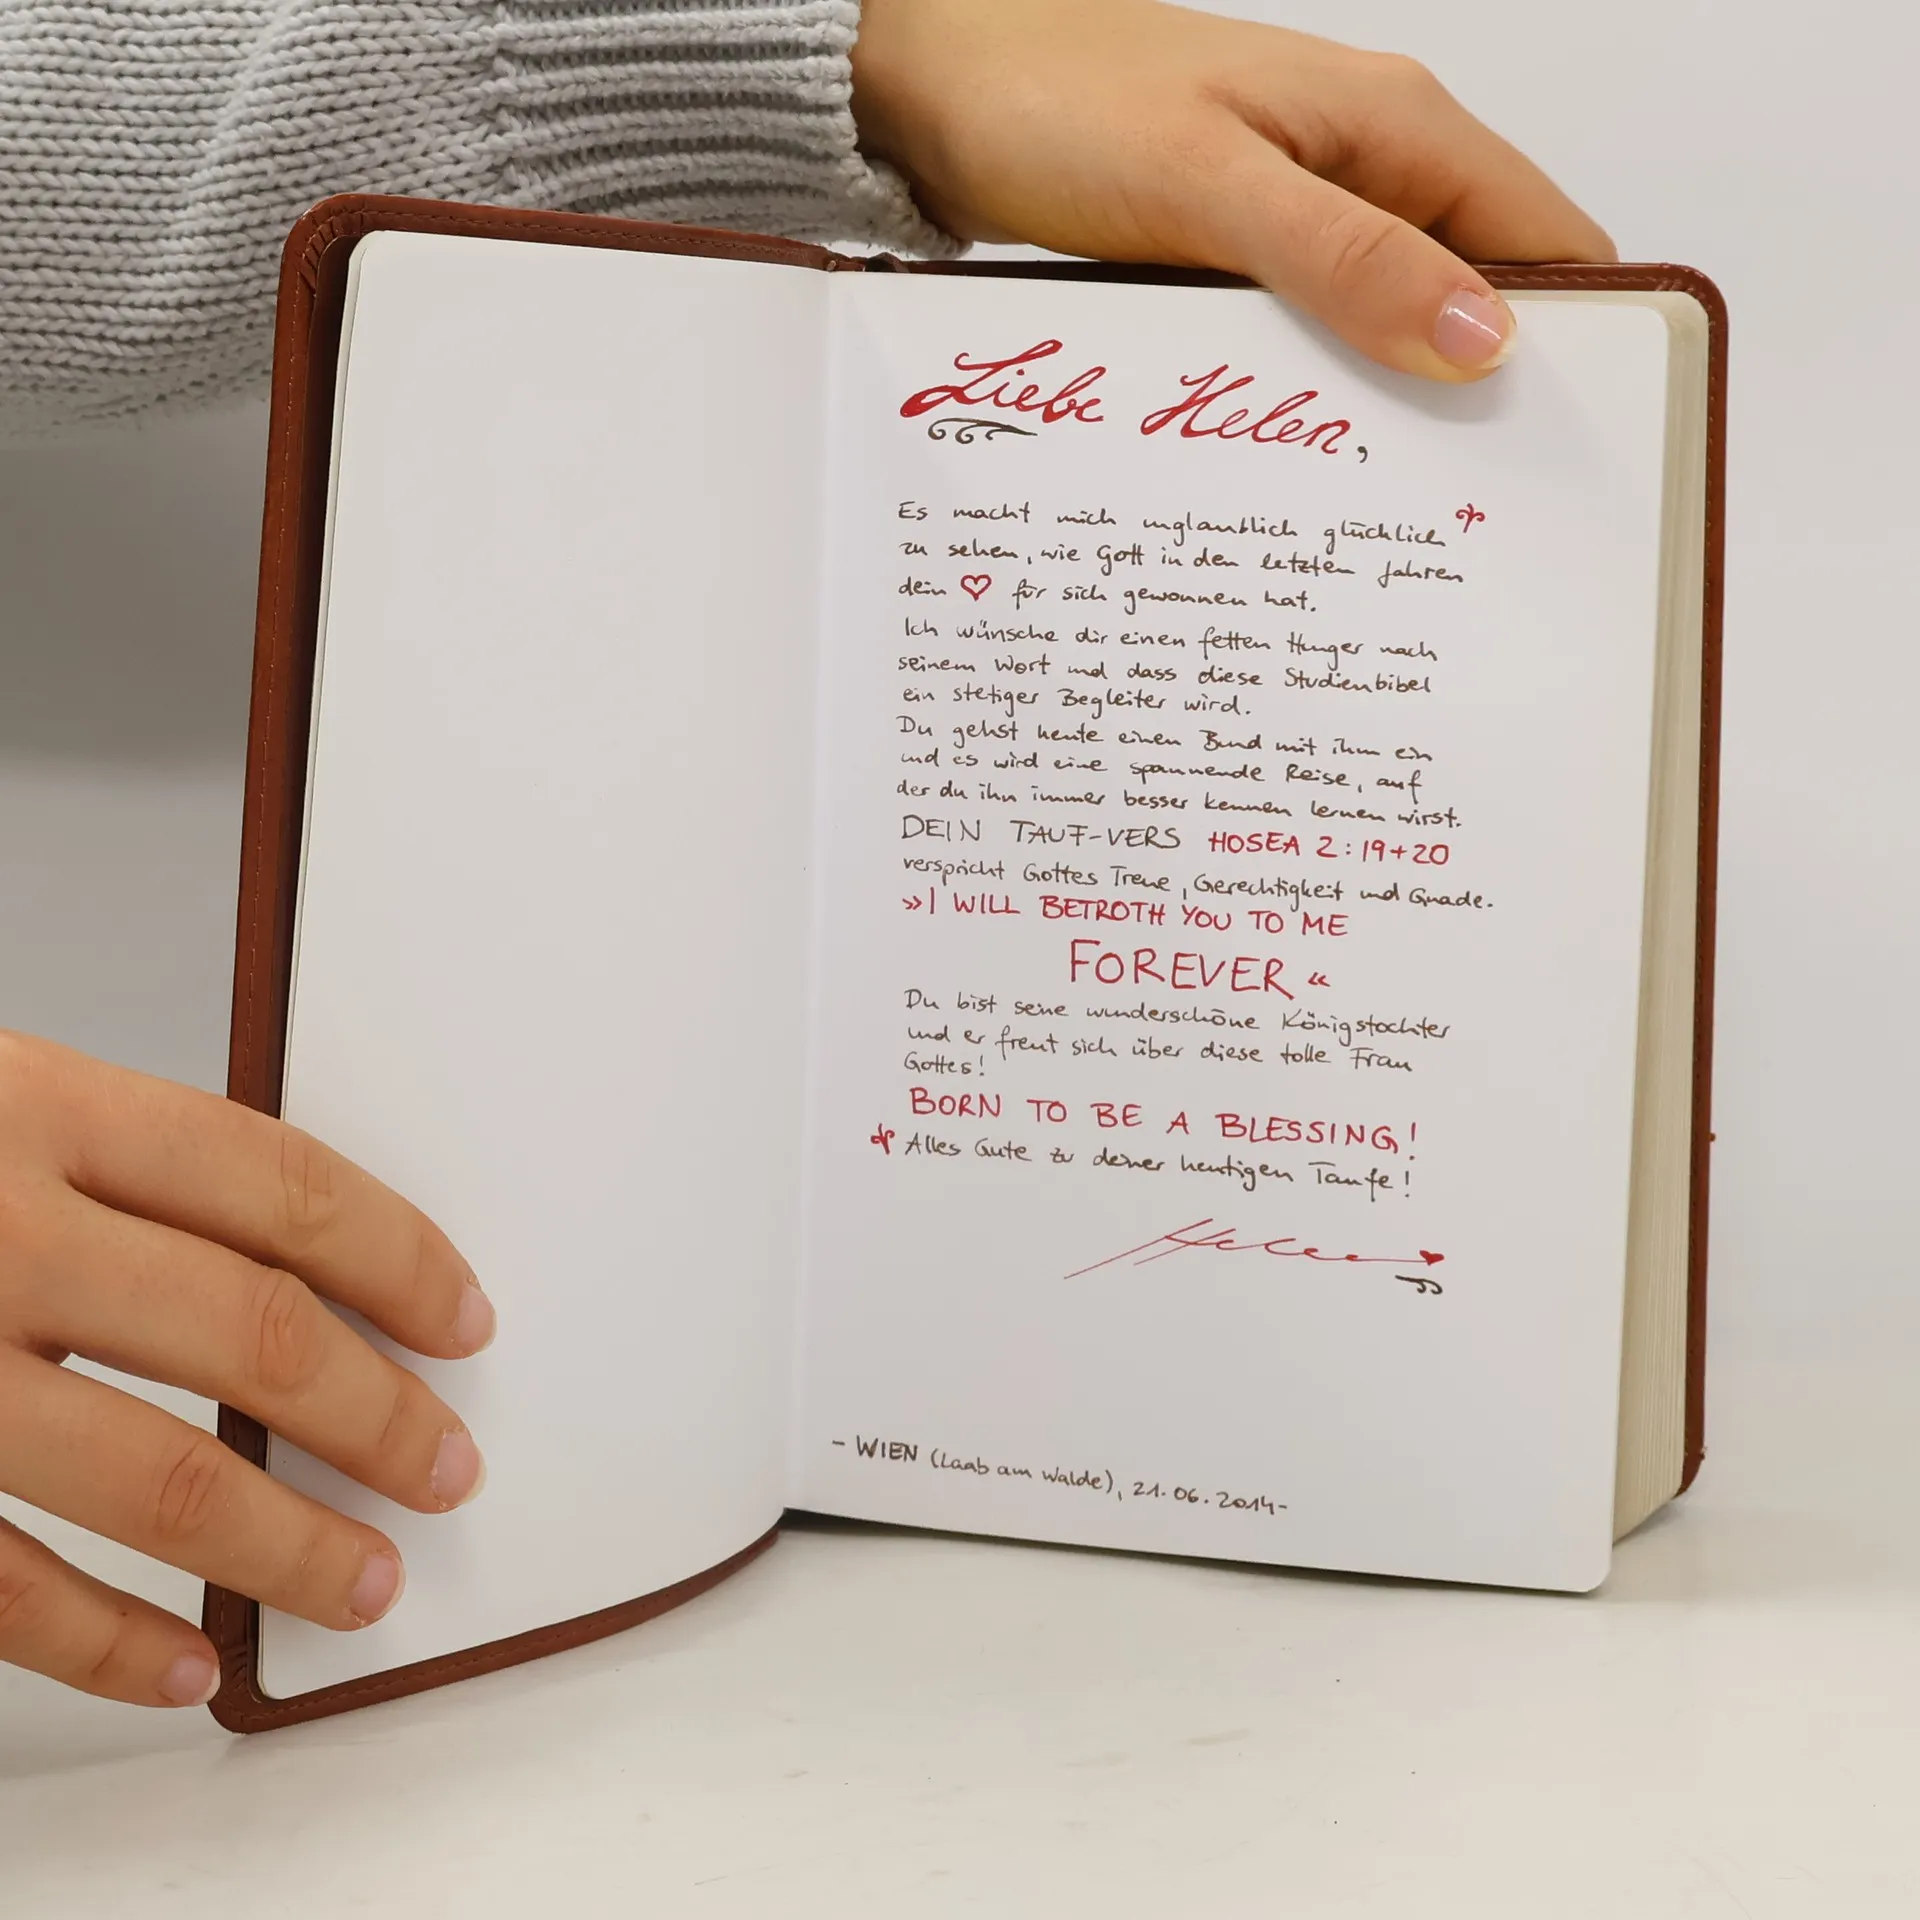 Liebe Helen,
Es macht mich unglaublich glücklich
zu sehen, wie Gott in den letzten Jahren
dein ♡ für sich gewonnen hat.
Ich wünsche dir einen fetten Hunger nach
seinem Wort und dass diese Studienbibel
ein stetiger Begleiter wird.
Du gehst heute einen Bund mit ihm ein
und es wird eine spannende Reise, auf
der du ihn immer besser kennen lernen wirst.
DEIN TAUF-VERS HOSEA 2:19+20
verspricht Gottes Treue, Gerechtigkeit und Gnade.
»I WILL BETROTH YOU TO ME
FOREVER«
Du bist seine wunderschöne Königstochter
und er freut sich über diese tolle Frau
Gottes!
BORN TO BE A BLESSING!
Alles Gute zu deiner heutigen Taufe!
- WIEN (Laab am Walde), 21.06.2014-